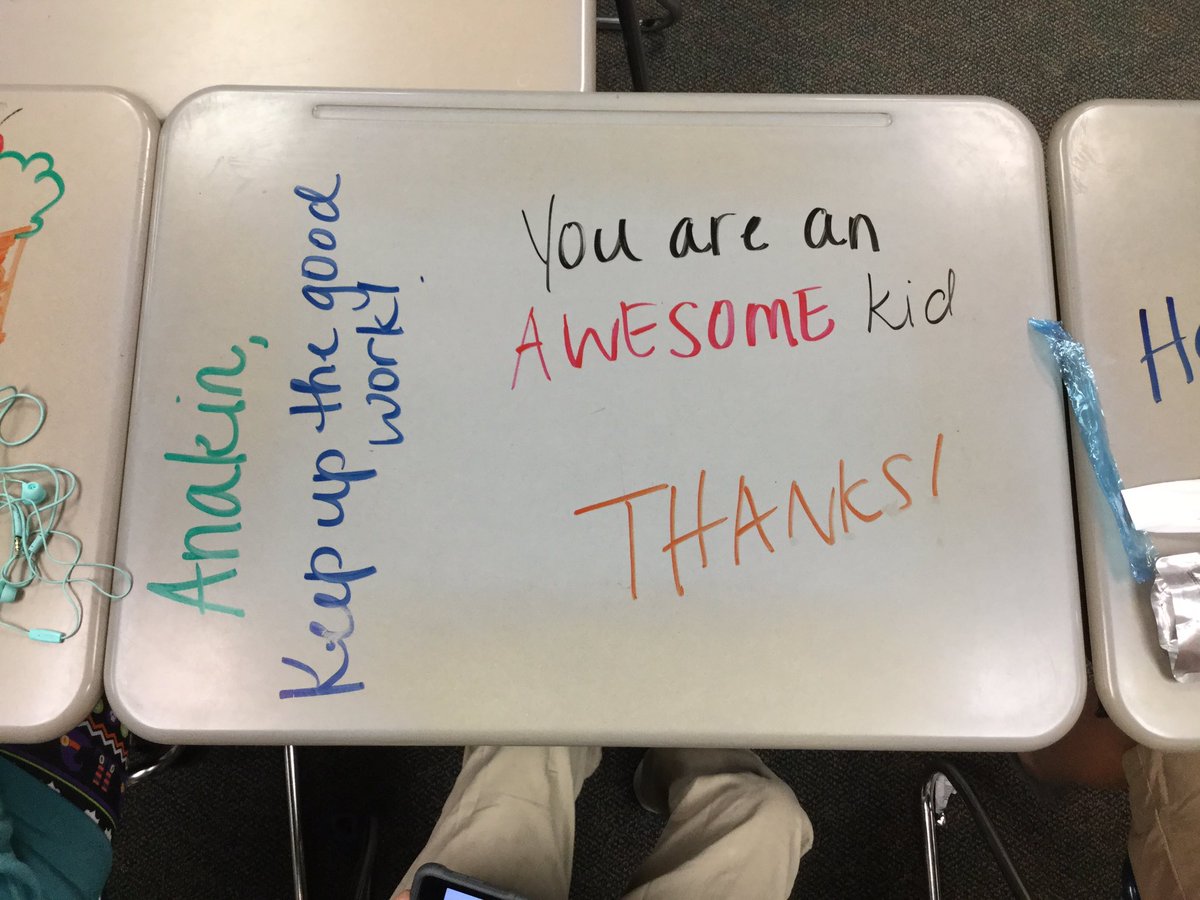 Anakin,
Keep up the good
work!
You are an
AWESOME kid
THANKS!